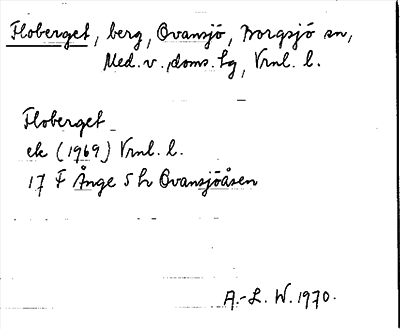 Floberget, berg, Ovansjö, Borgsjö sn,
Med. v. doms. tg, Vrnl. l.
Floberget
ek (1969) Vrnl. l.
17 F Ånge 5 h Ovansjöåsen
A.-L. W. 1970.